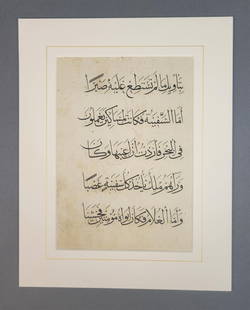 بتاويل ما لم تستطع عليه صبرا
اما السفينة فكانت لمساكين يعملون
في البحر فاردت ان اعيبها وكان
وراءهم ملك ياخذ كل سفينة غصبا
واما الغلام فكان ابواه مومنين فخشينا